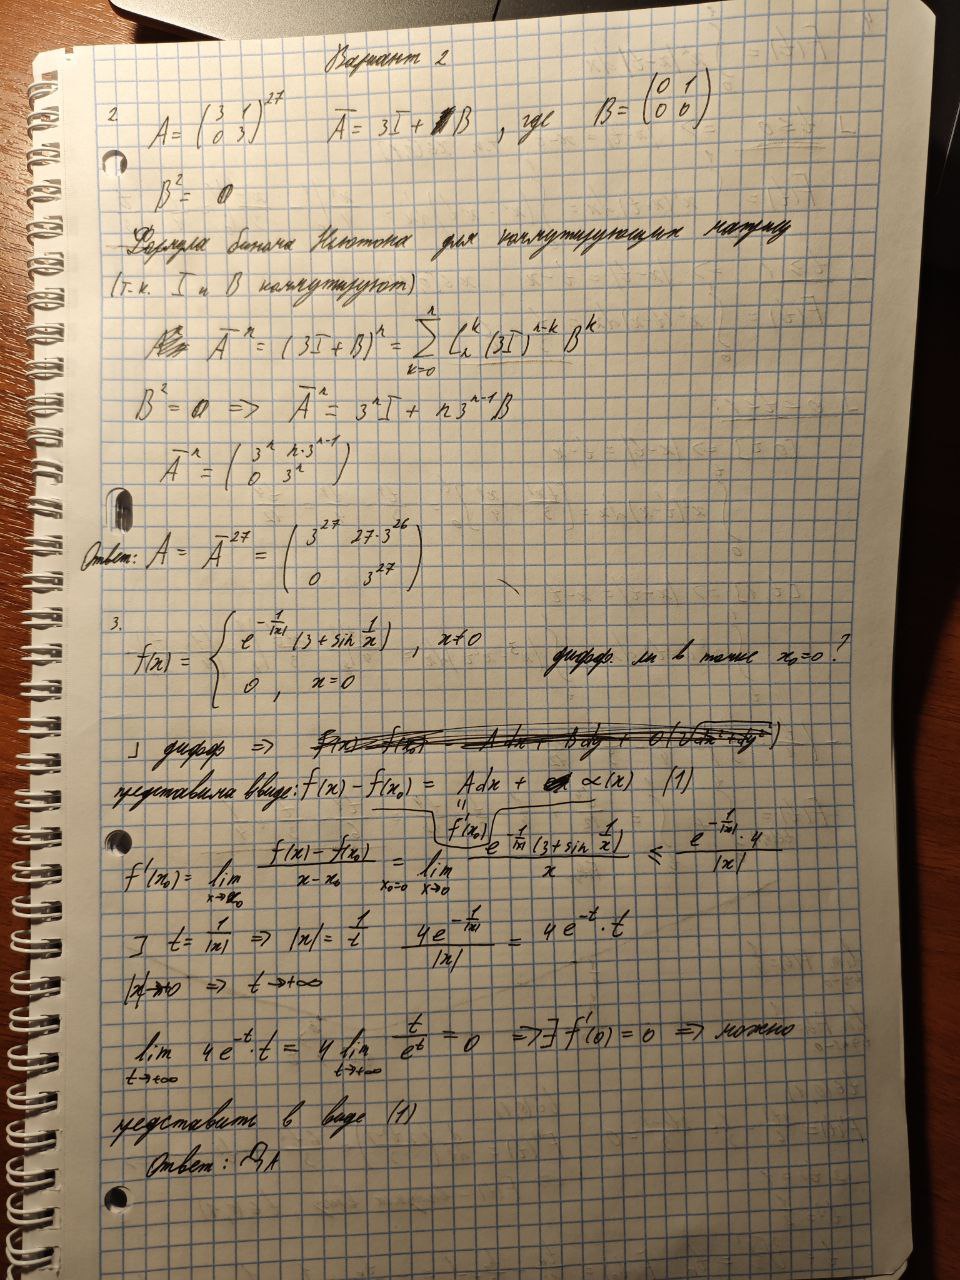 Вариант 2
2. A = (3 1; 0 3)^27   Ā = 3I + B , где B = (0 1; 0 0)
B² = 0
Формула бинома Ньютона для коммутирующих матриц
(т.к. I и B коммутируют)
Āⁿ = (3I + B)ⁿ = ∑_{k=0}^{n} C_n^k (3I)^{n-k} B^k
B² = 0 => Āⁿ = 3ⁿI + n3^{n-1}B
Āⁿ = (3ⁿ n·3^{n-1}; 0 3ⁿ)
Ответ: A = Ā^27 = (3^27 27·3^26; 0 3^27)
3. f(x) = { e^{-1/|x|} (3 + sin 1/x) , x≠0 ; 0 , x=0   дифф. ли в точке x₀=0 ?
] дифф => f(x) - f(x₀) = A dx + B dy + o(√(dx²+dy²))
представима в виде: f(x) - f(x₀) = A dx + α(x) (1)
" f'(x₀)
f'(x₀) = lim_{x→x₀} (f(x) - f(x₀))/(x - x₀) =_{x₀=0} lim_{x→0} e^{-1/|x|}(3 + sin 1/x)/x ≤ e^{-1/|x|}·4/|x|
] t = 1/|x| => |x| = 1/t   4e^{-1/|x|}/|x| = 4e^{-t}·t
|x|→0 => t→+∞
lim_{t→+∞} 4e^{-t}·t = 4 lim_{t→+∞} t/e^t = 0 => ∃ f'(0) = 0 => можно
представить в виде (1)
Ответ: ДА